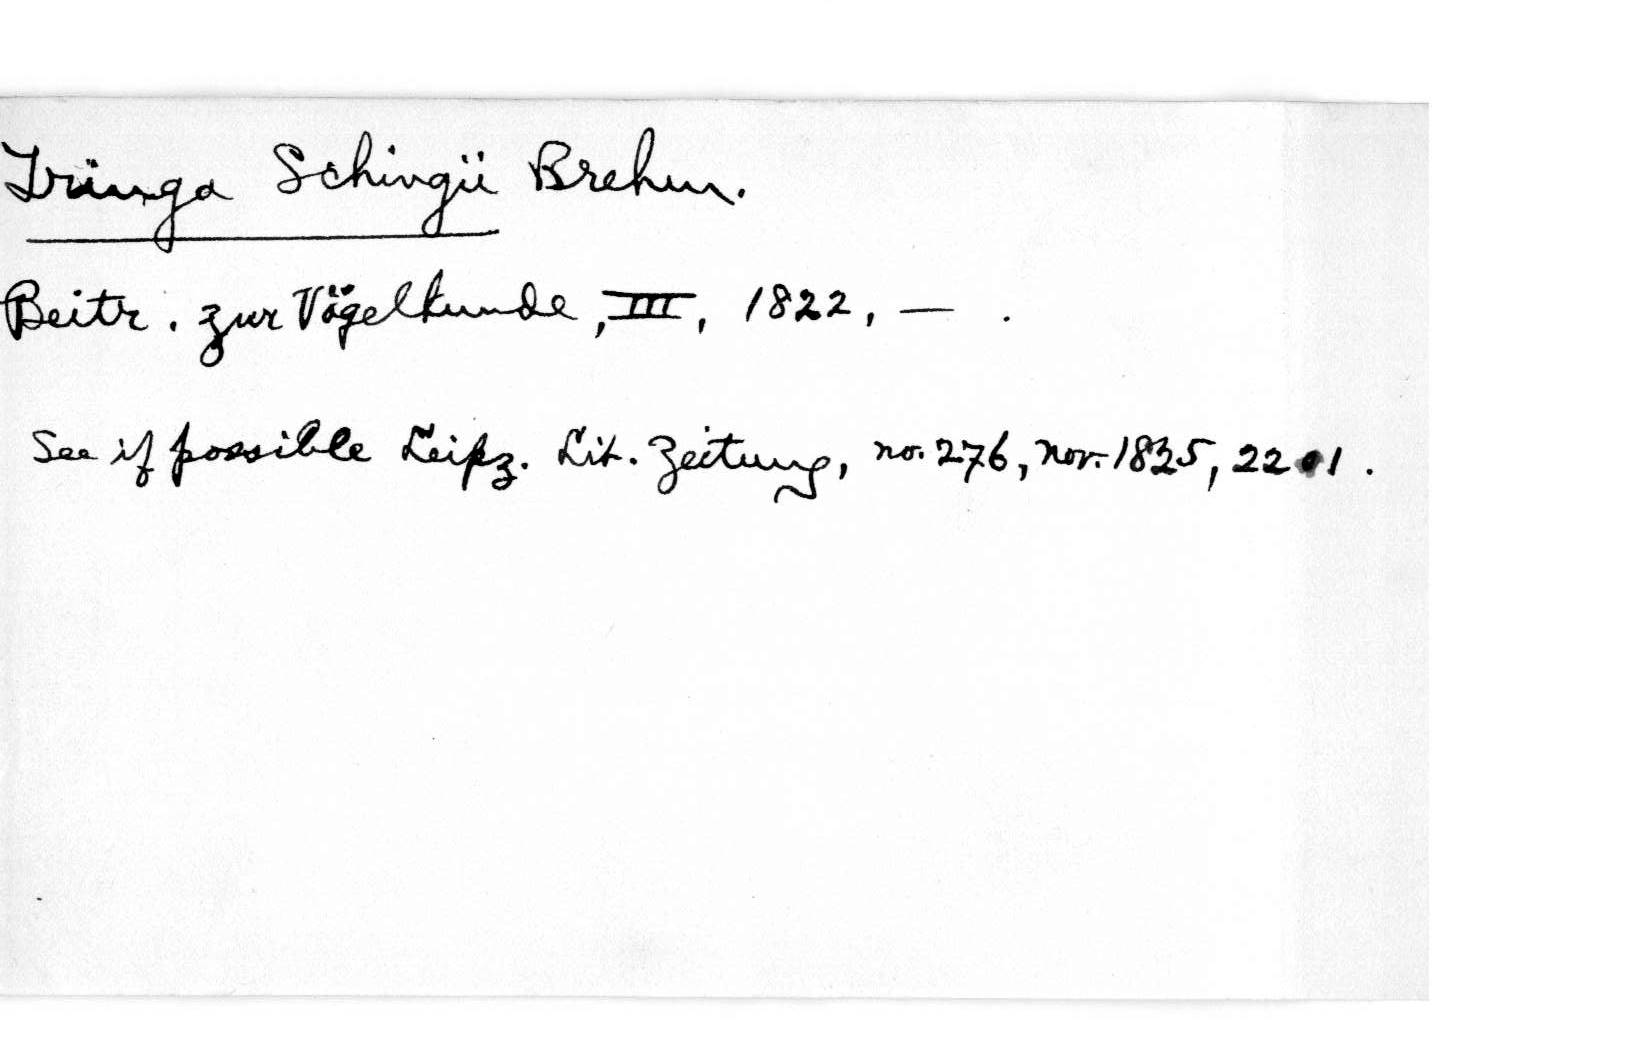 Tringa Schingii Brehm.
Beitr. zur Vögelkunde, III, 1822, — .
See if possible Leipz. Lit. Zeitung, no. 276, Nov. 1825, 2201.